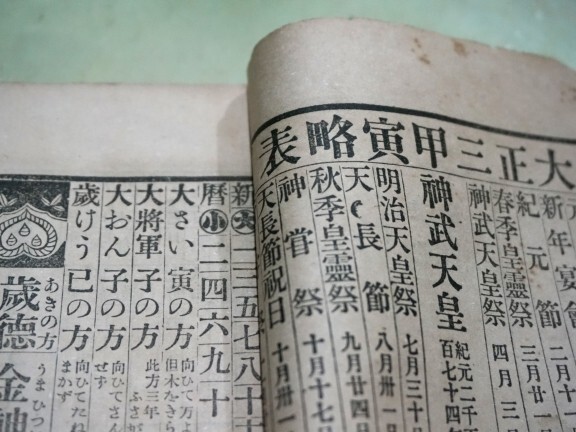 大正三甲寅略表
新年宴會
紀元節 二月十
春季皇靈祭 三月廿一
神武天皇祭 四月三
神武天皇 紀元二千
百七十四年
明治天皇祭 七月三十
天長節 八月卅一
秋季皇靈祭 九月廿四
神嘗祭 十月十七
天長節祝日 十月卅一
新暦
大 三五七八十
小 二四六九十
大さい寅の方 向ひて万よ
但木をきら
大將軍子の方 此方三年
ふさが
大おん子の方 向ひてさん
せず
歲けう巳の方 向ひてたね
まかず
あきの方
うまひつ
歲德 金神